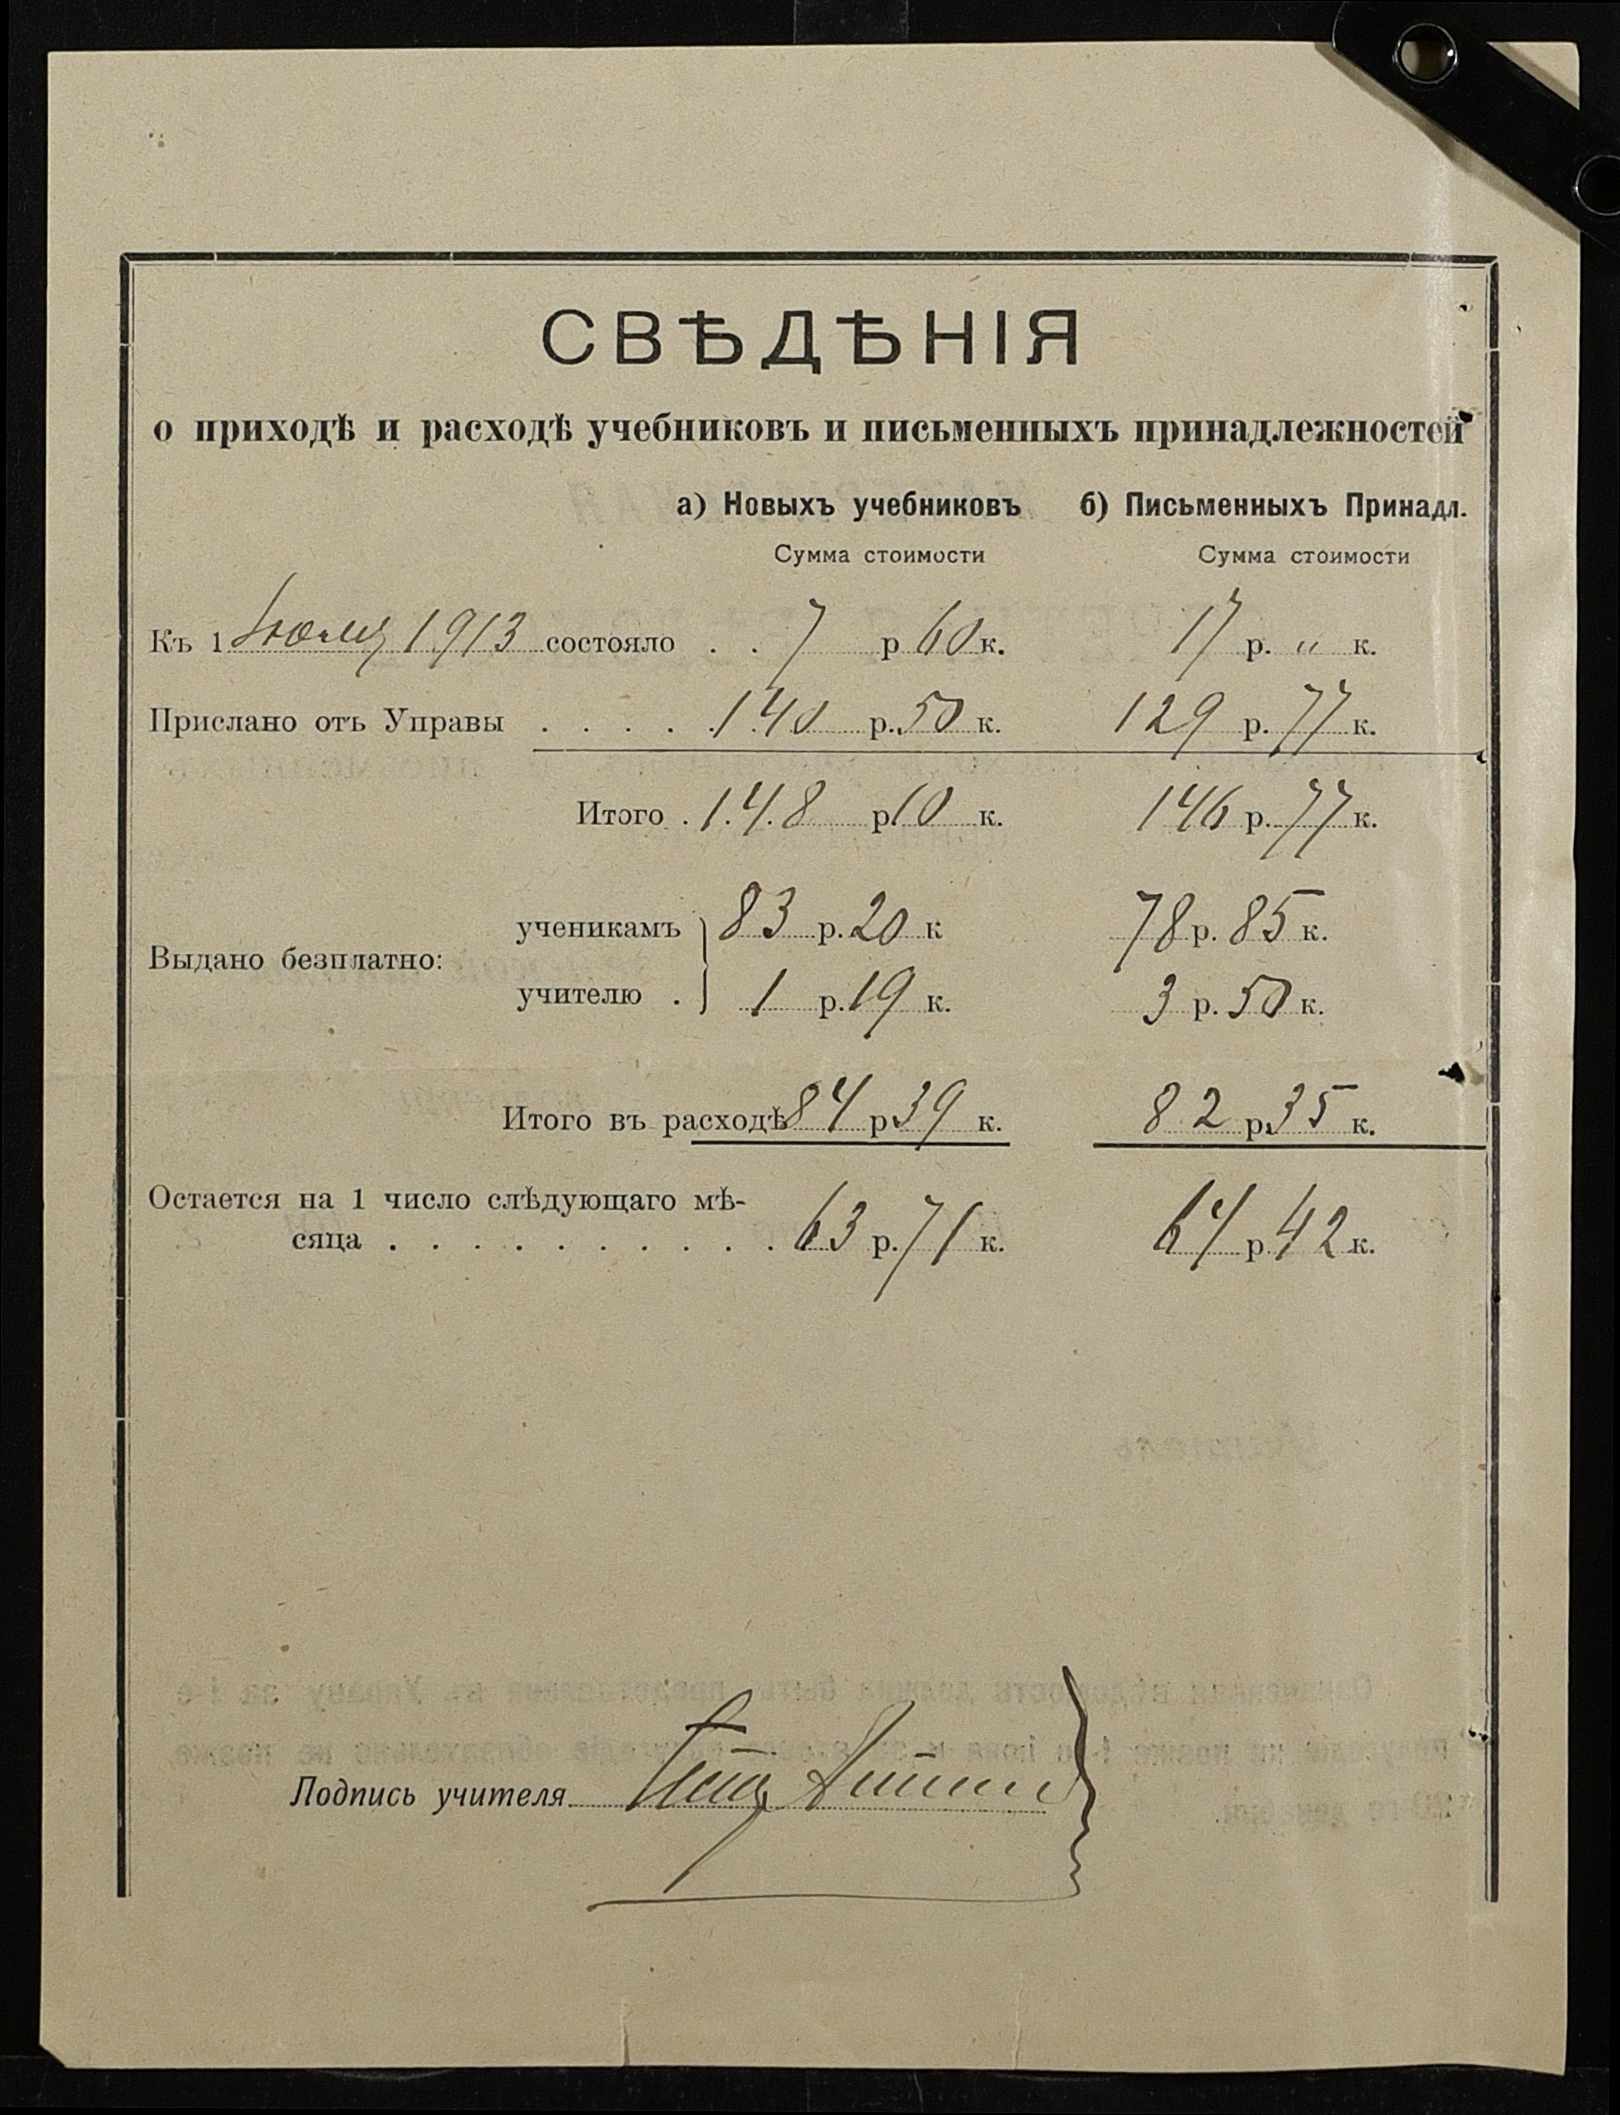 СВѢДѢНІЯ
о приходѣ и расходѣ учебниковъ и письменныхъ принадлежностей
а) Новыхъ учебниковъ б) Письменныхъ Принадл.
Сумма стоимости Сумма стоимости
Къ 1 Іюля 1913 состояло . . 7 р 60 к. 17 р. „ к.
Прислано отъ Управы . . . . . 140 р. 50 к. 129 р. 77 к.
Итого . 148 р 10 к. 146 р. 77 к.
ученикамъ 83 р. 20 к 78 р. 85 к.
Выдано безплатно:
учителю . 1 р. 19 к. 3 р. 50 к.
Итого въ расходѣ 84 р 39 к. 82 р. 35 к.
Остается на 1 число слѣдующаго мѣ-
сяца . . . . . . . . . . 63 р. 71 к. 64 р. 42 к.
Подпись учителя